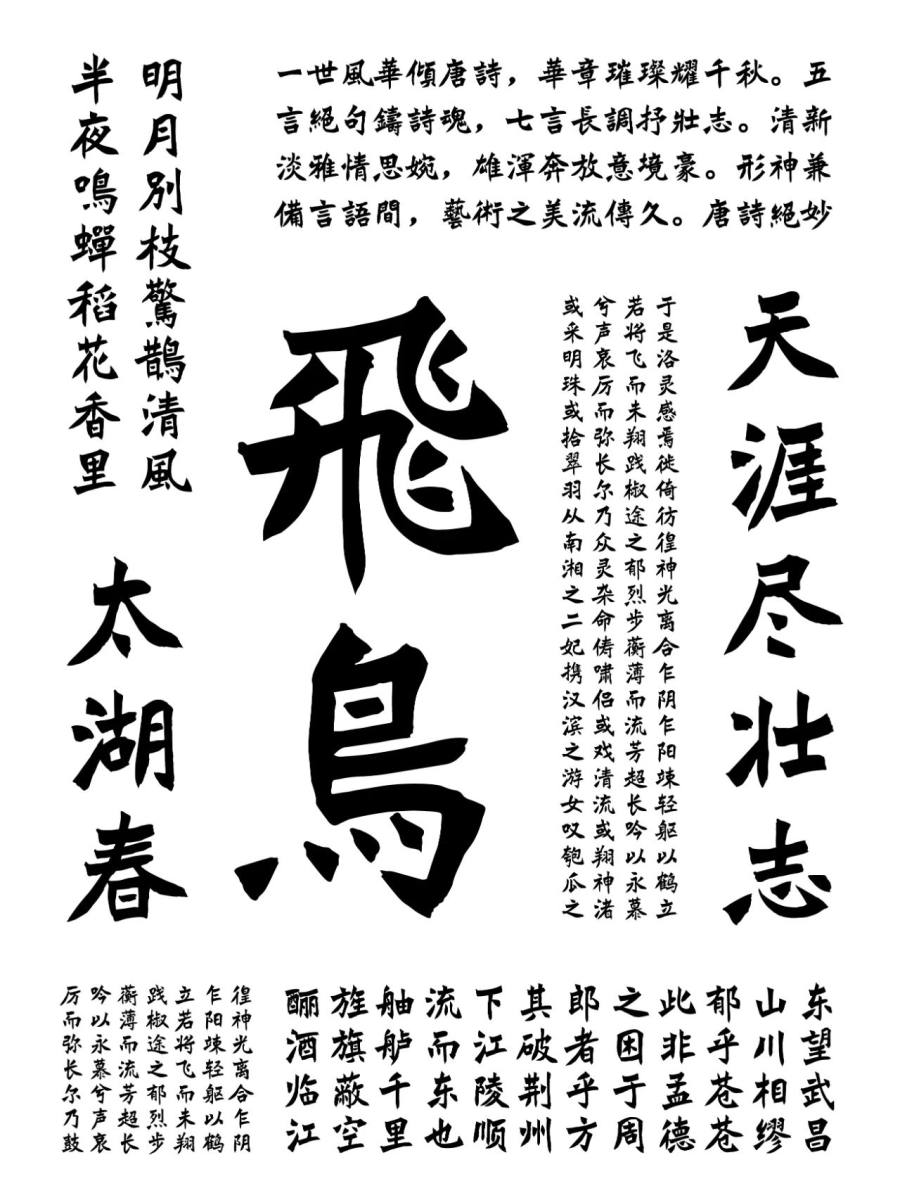 明月別枝驚鵲清風
半夜鳴蟬稻花香里
一世風華傾唐詩，華章璀璨耀千秋。五
言絕句鑄詩魂，七言長調抒壯志。清新
淡雅情思婉，雄渾奔放意境豪。形神兼
備言語間，藝術之美流傳久。唐詩絕妙
天涯尽壮志
于是洛灵感焉徙倚彷徨神光离合乍阴乍阳竦轻躯以鹤立
若将飞而未翔践椒途之郁烈步蘅薄而流芳超长吟以永慕
兮声哀厉而弥长尔乃众灵杂命俦啸侣或戏清流或翔神渚
或采明珠或拾翠羽从南湘之二妃携汉滨之游女叹匏瓜之
飛鳥
太湖春
东望武昌
山川相缪
郁乎苍苍
此非孟德
之困于周
郎者乎方
其破荆州
下江陵顺
流而东也
舳舻千里
旌旗蔽空
酾酒临江
徨神光离合乍阴
乍阳竦轻躯以鹤
立若将飞而未翔
践椒途之郁烈步
蘅薄而流芳超长
吟以永慕兮声哀
厉而弥长尔乃鼓